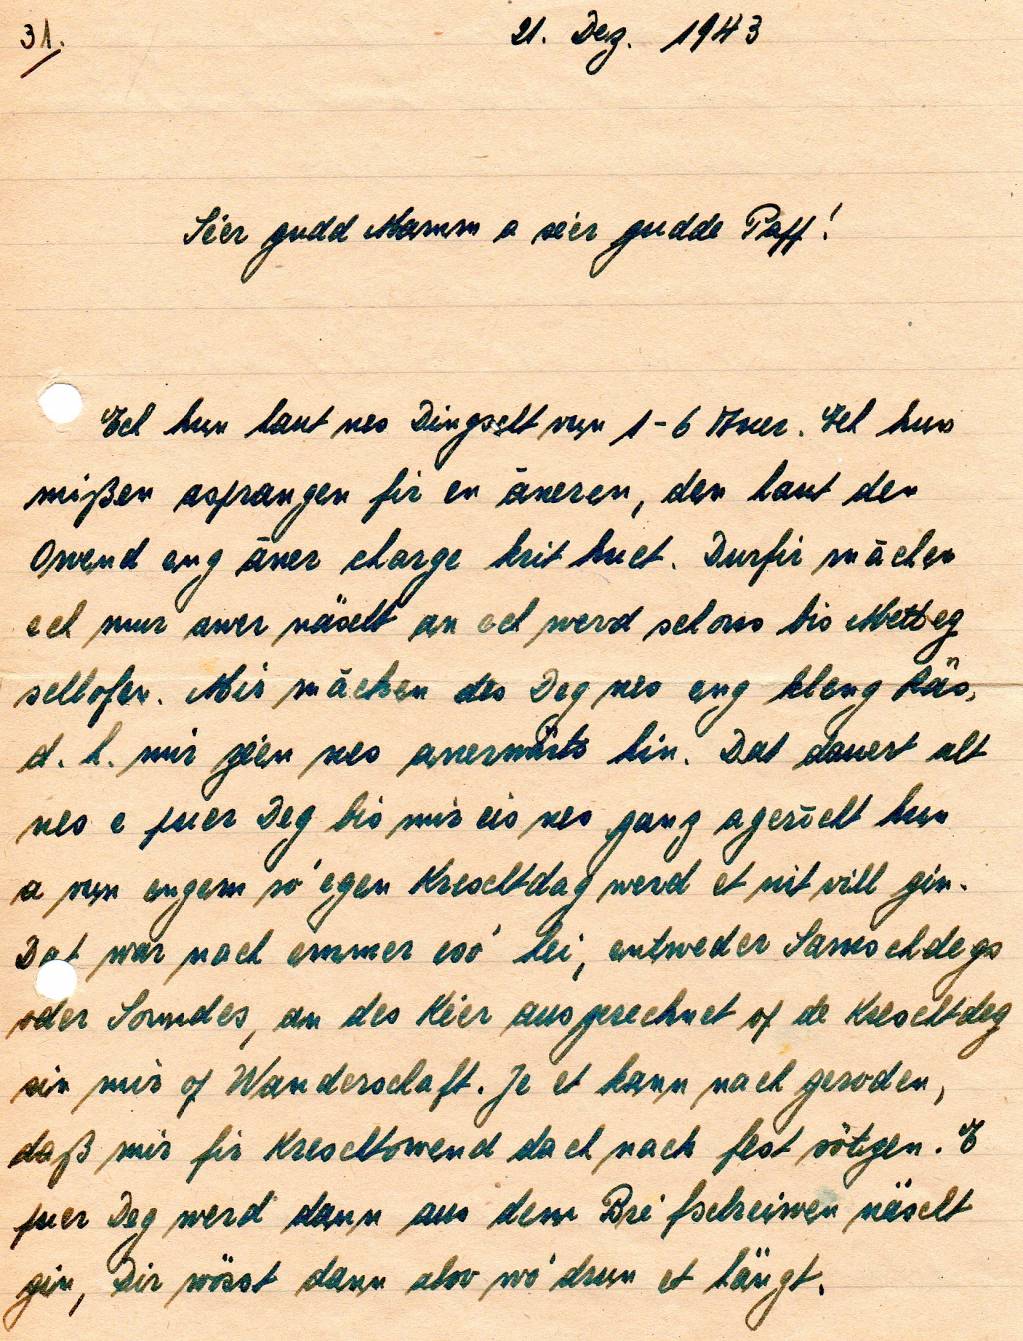 31.
21. Dez. 1943
Séer gudd Mamm a séer gudde Paff!
Ech hun haut nes Dingscht vun 1-6 Auer. Ech hun
mißen asprangen fir en äneren, den haut den
Owend eng äner charge krit huet. Durfir mächen
ech mur awer näscht an ech werd schons bis Metteg
schlofen. Mir mächen des Deg nes eng kleng Räs,
d. h. mir géen nes anerwärts hin. Dat dauert alt
nes e puer Deg bis mir eis nes ganz ageriicht hun
a vun engem ró egen Kreschtdag werd et nit vill gin.
Dat war nach ëmmer esó hei, entweder Samschdegs
oder Sonndes, an des Kéer ausgerechnet of de Kreschtdeg
sin mir of Wanderschaft. Je et kann nach geroden,
daß mir fir Kreschtowend dach nach fest sötzen. E
puer Deg werd dann aus dem Bréifschreiwen näscht
gin, Dir wösst dann alov wó drun et längt.